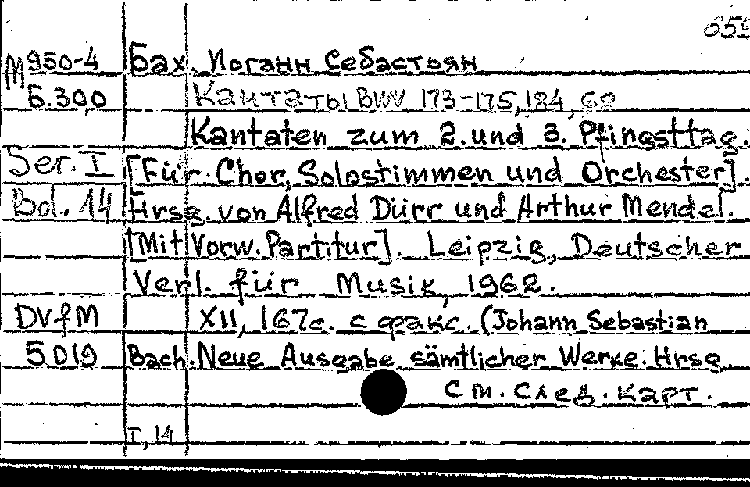 659
М950-4 Бах, Иоганн Себастьян
Б.300 Кантаты BWV 173-175, 184, 68
Kantaten zum 2. und 3. Pfingsttag.
Ser. I [Für Chor, Solostimmen und Orchester].
Bd. 14 Hrsg. von Alfred Dürr und Arthur Mendel.
[Mit Vorw. Partitur]. Leipzig, Deutscher
Verl. für Musik, 1962.
DVfM XII, 167 с. с факс. (Johann Sebastian
5019 Bach. Neue Ausgabe sämtlicher Werke. Hrsg
См. след. карт.
I, 14